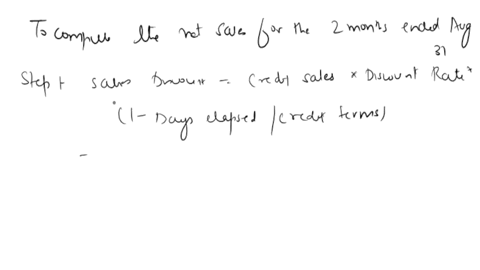 To compute the net sales for the 2 months ended Aug
31
Step 1 sales Discount = Credit sales * Discount Rate *
(1 - Days elapsed / credit terms)
=